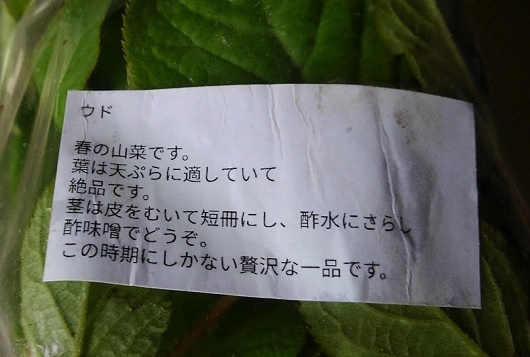 ウド
春の山菜です。
葉は天ぷらに適していて
絶品です。
茎は皮をむいて短冊にし、酢水にさらし
酢味噌でどうぞ。
この時期にしかない贅沢な一品です。